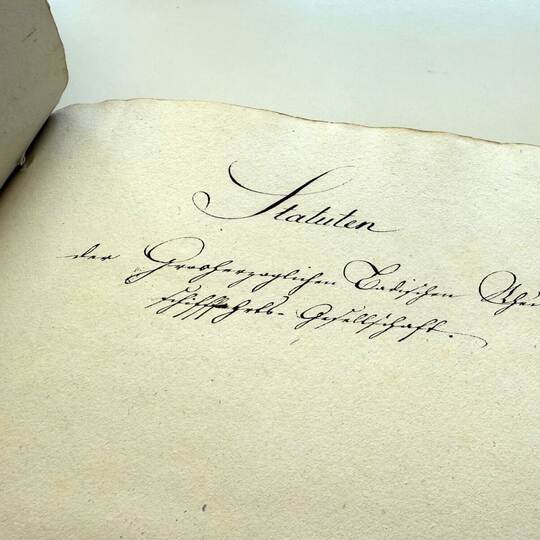 Statuten
der Grosherzoglichen Badischen Rhei
schifffahrts- Gesellschaft.